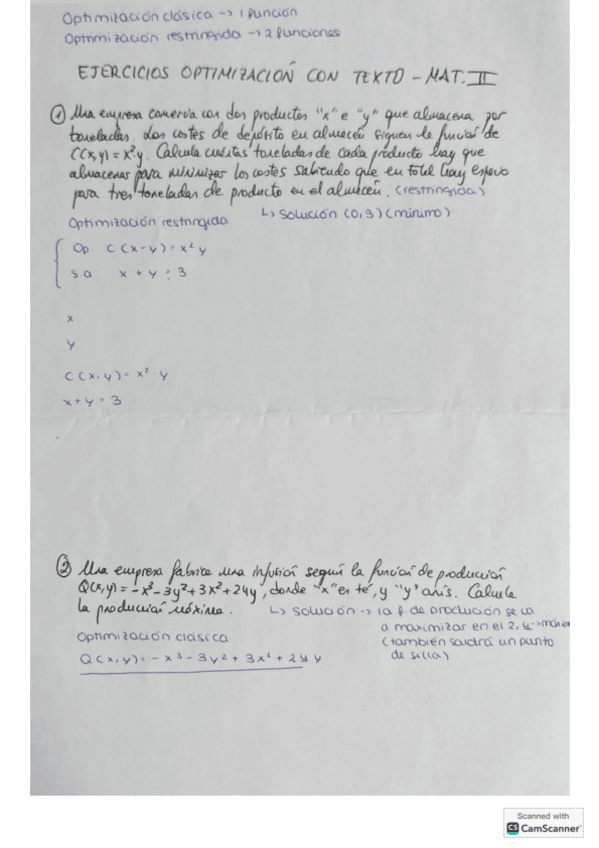 Optimización clásica -> 1 función
Optimización restringida -> 2 funciones
EJERCICIOS OPTIMIZACIÓN CON TEXTO - MAT. II
① Una empresa comercia con dos productos "x" e "y" que almacena por
toneladas. Los costes de depósito en almacén siguen la función de
C(x,y) = x²y. Calcula cuántas toneladas de cada producto hay que
almacenar para minimizar los costes sabiendo que en total hay espacio
para tres toneladas de producto en el almacén. (restringida)
Optimización restringida
↳ Solución (0,3) (mínimo)
Op. C(x-y) = x² y
s a x + y = 3
x
y
C(x,y) = x² y
x+y = 3
② Una empresa fabrica una infusión según la función de producción
Q(x,y) = -x³ - 3y² + 3x² + 24y, donde "x" es té, y "y" anís. Calcula
la producción máxima.
↳ Solución -> la f. de producción se va
a maximizar en el 2,4 -> máximo
(también saldrá un punto
de silla)
Optimización clásica
Q(x,y) = -x³ - 3y² + 3x² + 24 y
Scanned with
CS CamScanner